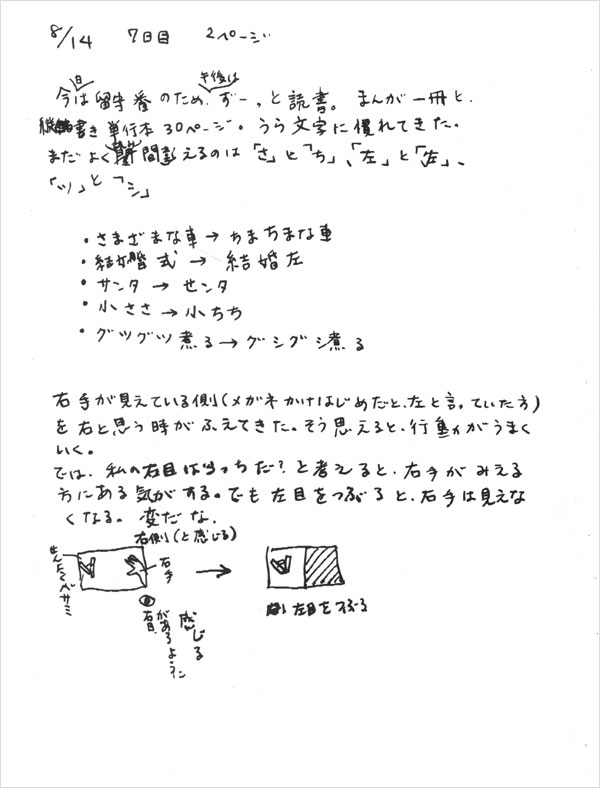 8/14 7日目 2ページ
今日は留守番のため、午後はずーっと読書。まんが一冊と、
縦書き単行本30ページ。うら文字に慣れてきた。
まだよく間違えるのは「さ」と「ち」、「左」と「右」、
「ツ」と「シ」
・さまざまな車→ちまちまな車
・結婚式→結婚左
・サンタ→センタ
・小ささ→小ちち
・グツグツ煮る→グシグシ煮る
右手が見えている側(メガネかけはじめだと、左と言っていた方)
を右と思う時がふえてきた。そう思えると、行動がうまく
いく。
では、私の右目はどっちだ?と考えると、右手がみえる
方にある気がする。でも左目をつぶると、右手は見えな
くなる。変だな。
右側(と感じる)
せんたくバサミ
右手
右目があるように感じる
左目をつぶる